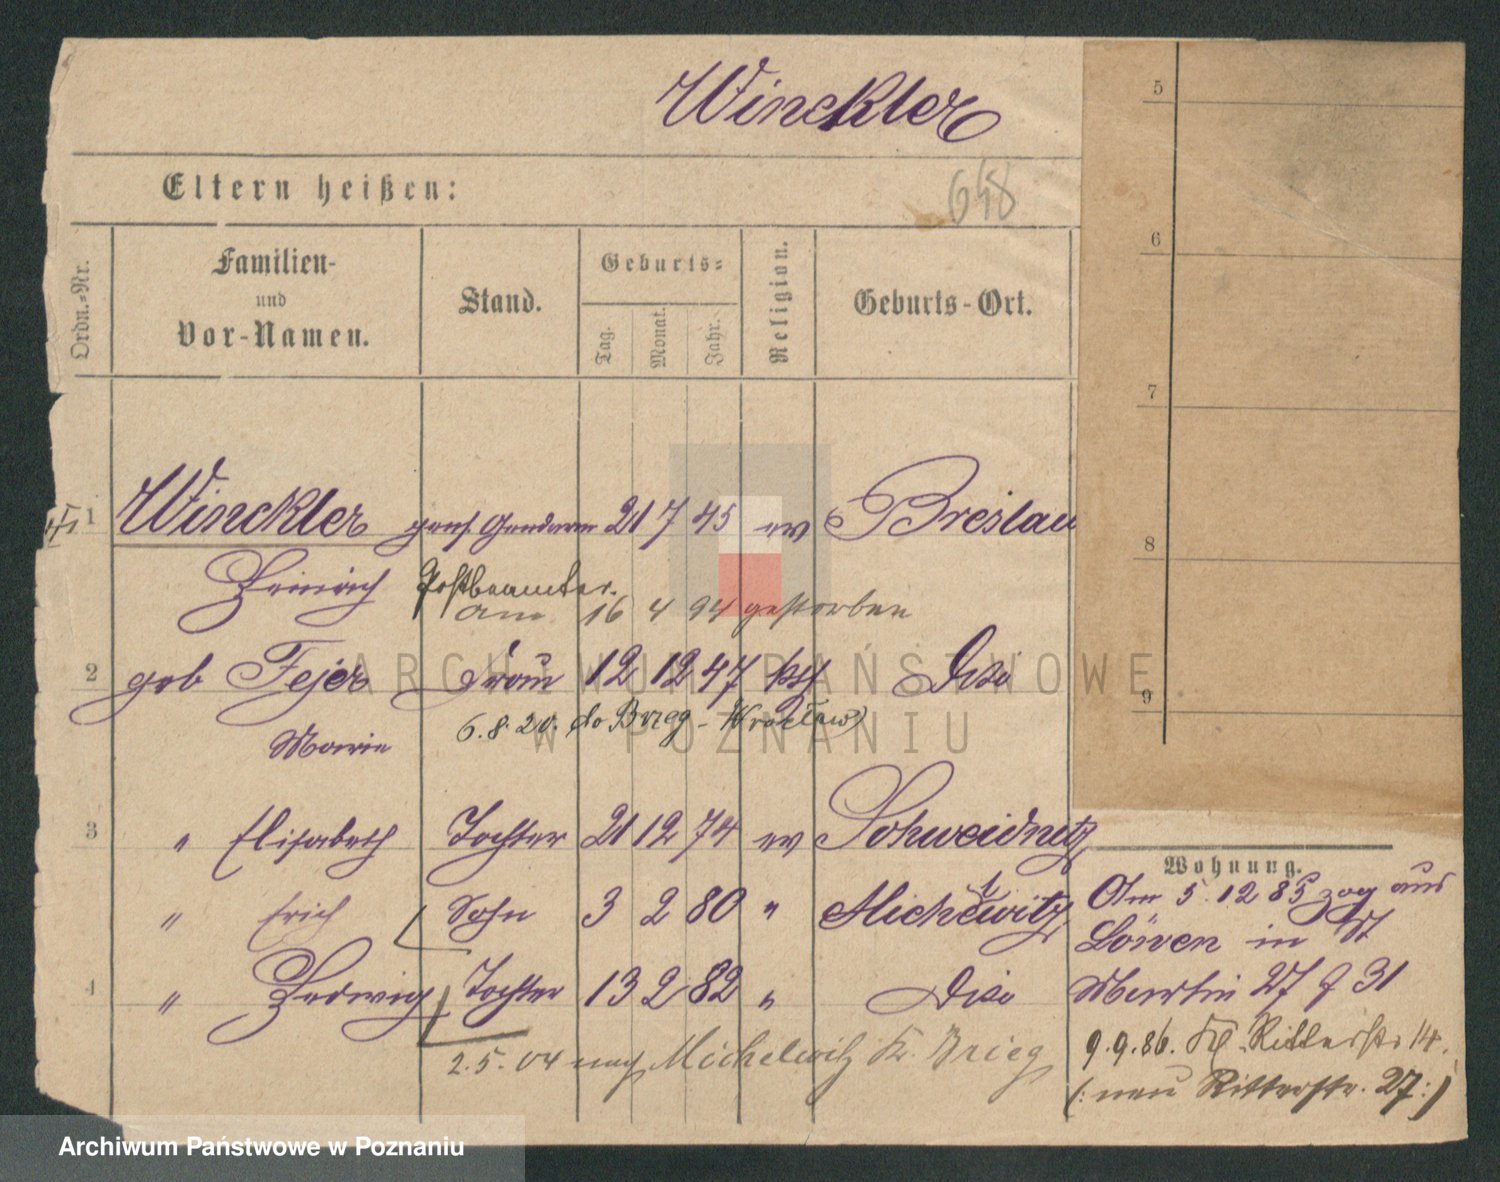 Winckler
Eltern heißen:
648
Ordn.-Nr.
Familien-
und
Vor-Namen.
Stand.
Geburts-
Tag.
Monat.
Jahr.
Religion.
Geburts-Ort.
1 Winckler pens. Gendarm 21 7 45 ev Breslau
Heinrich Postbeamter.
am 16 4 94 gestorben
2 geb Fejer Frau 12 12 47 Dito
6.8.20. do Brzeg - Wrocław
Marie
3 " Elisabeth Tochter 21 12 74 ev Schweidnitz
" Erich Sohn 3 2 80 " Michelwitz
4 " Hedwig Tochter 13 2 82 " Dito
2.5.04 nach Michelwitz Kr. Brieg
5
6
7
8
9
Wohnung.
Am 5.12 85 zog aus
Löwen in St
Martin 27 31
9.9.86. Kl. Ritterstr 14.
(: neu Ritterstr. 27:)
ARCHIWUM PAŃSTWOWE
W POZNANIU
Archiwum Państwowe w Poznaniu